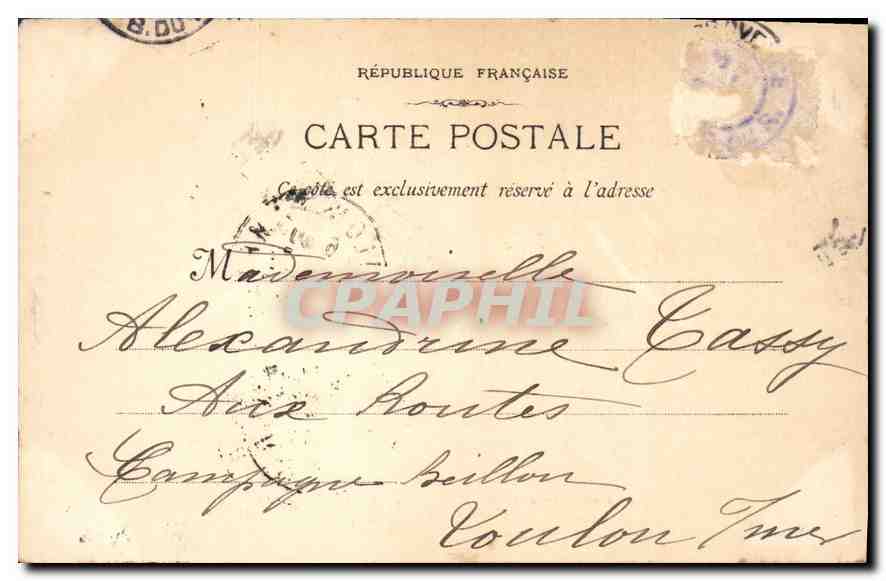 B. DU
RÉPUBLIQUE FRANÇAISE
CARTE POSTALE
Ce côté est exclusivement réservé à l'adresse
Mademoiselle
CPARHIL
Alexandrine Tassy
Aux Routes
Campagne Beillon
Toulon s/mer